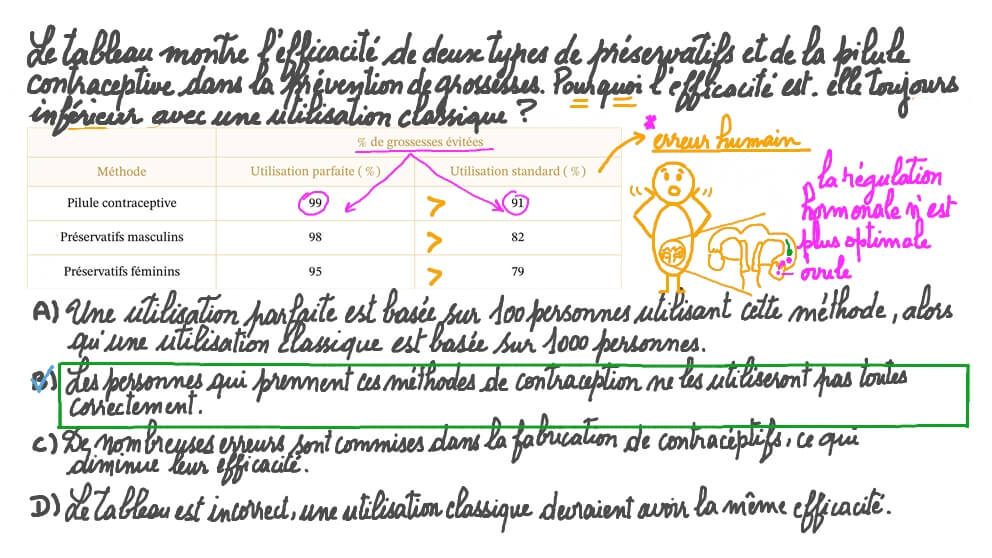 Le tableau montre l'efficacité de deux types de préservatifs et de la pilule
contraceptive dans la prévention de grossesses. Pourquoi l'efficacité est-elle toujours
inférieur avec une utilisation classique ?
% de grossesses évitées
Méthode Utilisation parfaite (%) Utilisation standard (%)
Pilule contraceptive 99 > 91
Préservatifs masculins 98 > 82
Préservatifs féminins 95 > 79
* erreur humain
la régulation
hormonale n'est
plus optimale
ovule
A) Une utilisation parfaite est basée sur 100 personnes utilisant cette méthode, alors
qu'une utilisation classique est basée sur 1000 personnes.
B) Les personnes qui prennent ces méthodes de contraception ne les utiliseront pas toutes
correctement.
C) De nombreuses erreurs sont commises dans la fabrication de contracéptifs, ce qui
diminue leur efficacité.
D) Le tableau est incorrect, une utilisation classique devraient avoir la même efficacité.